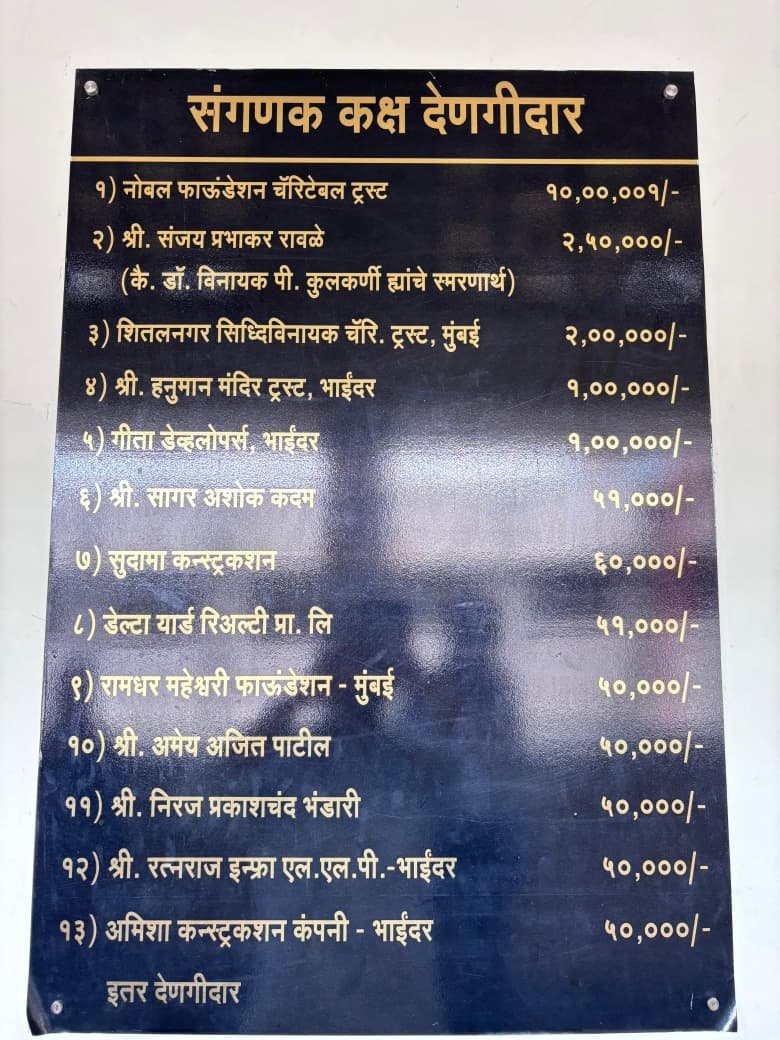 संगणक कक्ष देणगीदार
१) नोबल फाऊंडेशन चॅरिटेबल ट्रस्ट १०,००,००१/-
२) श्री. संजय प्रभाकर रावळे २,५०,०००/-
(कै. डॉ. विनायक पी. कुलकर्णी ह्यांचे स्मरणार्थ)
३) शितलनगर सिध्दिविनायक चॅरि. ट्रस्ट, मुंबई २,००,०००/-
४) श्री. हनुमान मंदिर ट्रस्ट, भाईंदर १,००,०००/-
५) गीता डेव्हलोपर्स, भाईंदर १,००,०००/-
६) श्री. सागर अशोक कदम ५१,०००/-
७) सुदामा कन्स्ट्रकशन ६०,०००/-
८) डेल्टा यार्ड रिअल्टी प्रा. लि ५१,०००/-
९) रामधर महेश्वरी फाऊंडेशन - मुंबई ५०,०००/-
१०) श्री. अमेय अजित पाटील ५०,०००/-
११) श्री. निरज प्रकाशचंद भंडारी ५०,०००/-
१२) श्री. रत्नराज इन्फ्रा एल.एल.पी.-भाईंदर ५०,०००/-
१३) अमिशा कन्स्ट्रकशन कंपनी - भाईंदर ५०,०००/-
इतर देणगीदार